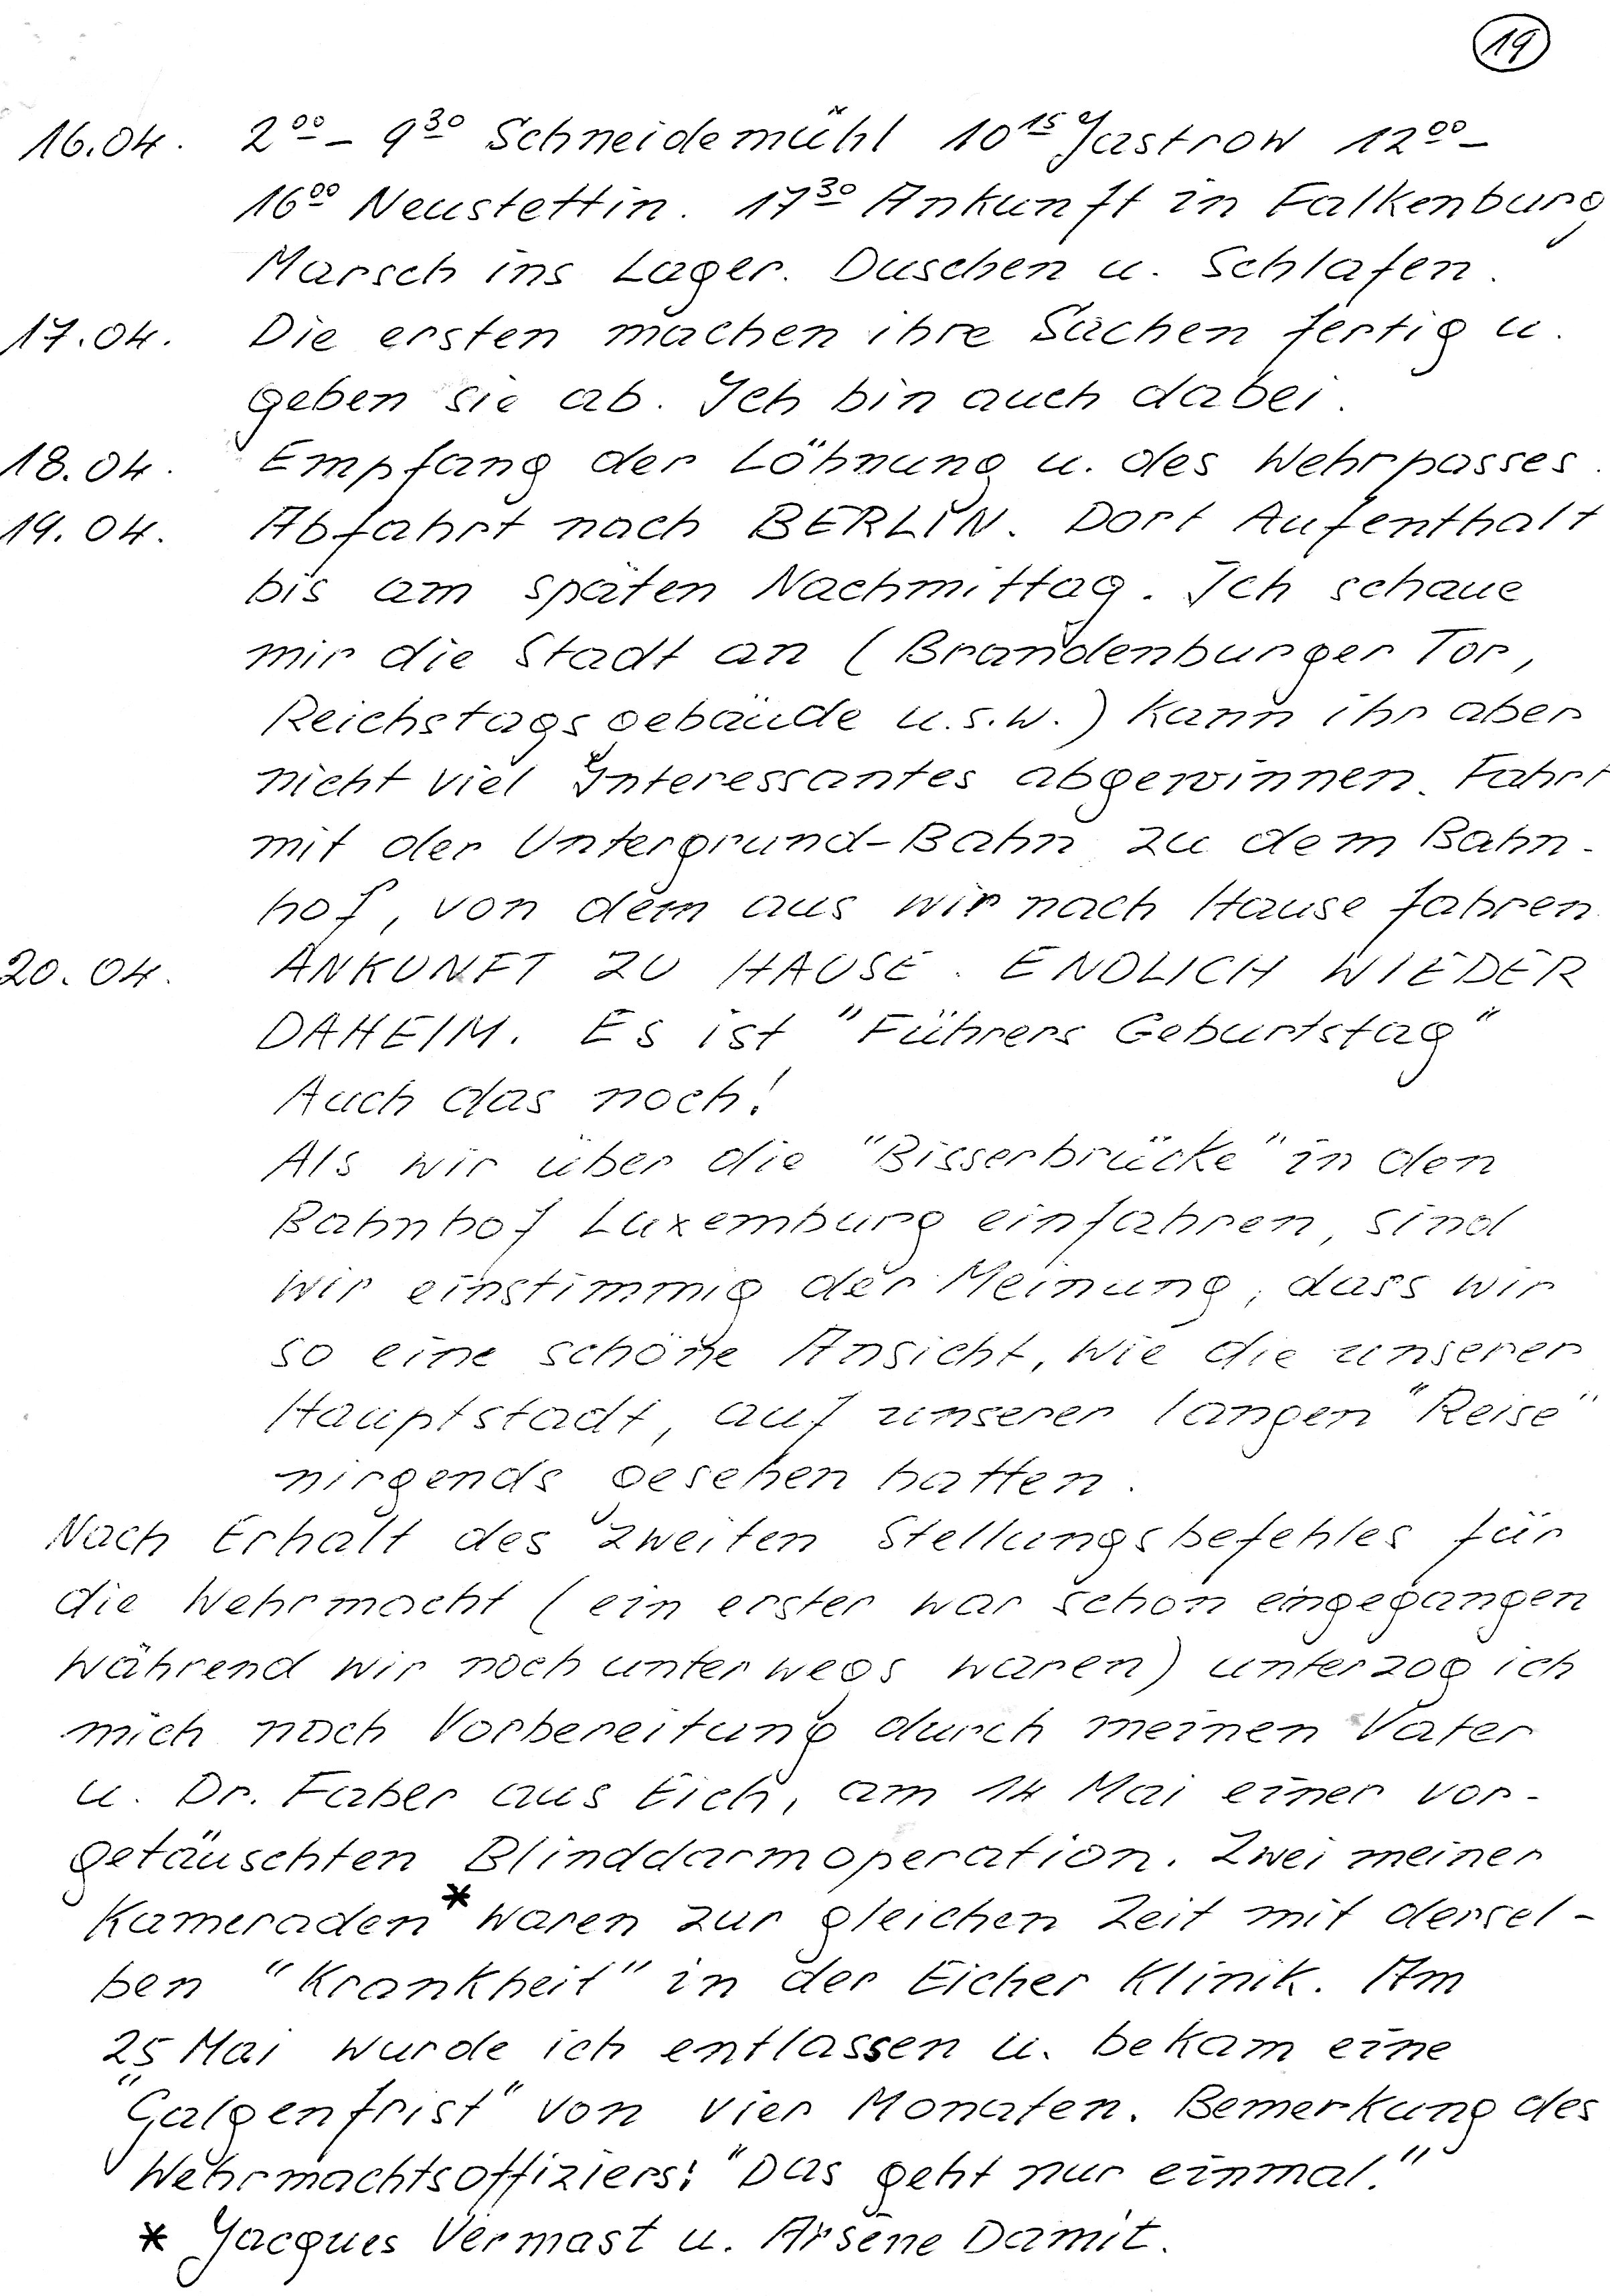 19
16.04. 2⁰⁰ – 9³⁰ Schneidemühl 10¹⁵ Jastrow 12⁰⁰ –
16⁰⁰ Neustettin. 17³⁰ Ankunft in Falkenburg
Marsch ins Lager. Duschen u. Schlafen.
17.04. Die ersten machen ihre Sachen fertig u.
geben sie ab. Ich bin auch dabei.
18.04. Empfang der Löhnung u. des Wehrpasses.
19.04. Abfahrt nach BERLIN. Dort Aufenthalt
bis am späten Nachmittag. Ich schaue
mir die Stadt an (Brandenburger Tor,
Reichstagsgebäude u.s.w.) kann ihr aber
nicht viel Interessantes abgewinnen. Fahrt
mit der Untergrund-Bahn zu dem Bahn-
hof, von dem aus wir nach Hause fahren.
20.04. ANKUNFT ZU HAUSE. ENDLICH WIEDER
DAHEIM. Es ist "Führers Geburtstag"
Auch das noch!
Als wir über die "Bisserbrücke" in den
Bahnhof Luxemburg einfahren, sind
wir einstimmig der Meinung, dass wir
so eine schöne Ansicht, wie die unserer
Hauptstadt, auf unserer langen "Reise"
nirgends gesehen hatten.
Nach Erhalt des zweiten Stellungsbefehles für
die Wehrmacht (ein erster war schon eingegangen
während wir noch unterwegs waren) unterzog ich
mich nach Vorbereitung durch meinen Vater
u. Dr. Faber aus Eich, am 14 Mai einer vor-
getäuschten Blinddarmoperation. Zwei meiner
Kameraden* waren zur gleichen Zeit mit dersel-
ben "Krankheit" in der Eicher Klinik. Am
25 Mai wurde ich entlassen u. bekam eine
"Galgenfrist" von vier Monaten. Bemerkung des
Wehrmachtsoffiziers: "Das geht nur einmal."
* Jacques Vermast u. Arsène Damit.